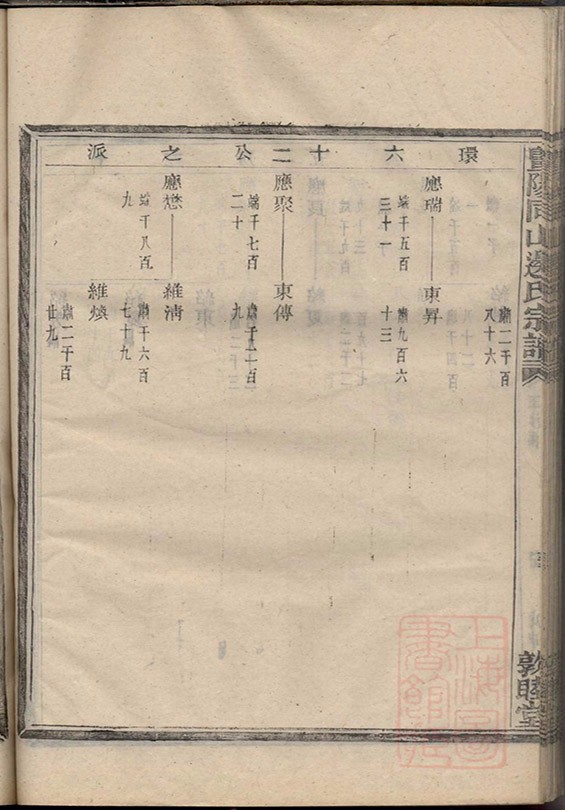 環六十二公之派
肅二千百八十六
應瑞——東昇
端千五百三十一
肅九百六十三
應聚——東傳
端千七百二十
肅千二百九
應懋——維清
端千八百九
肅千六百七十九
維煥
肅二千百廿九
暨陽同山邊氏宗譜
敦睦堂
上海圖書館藏